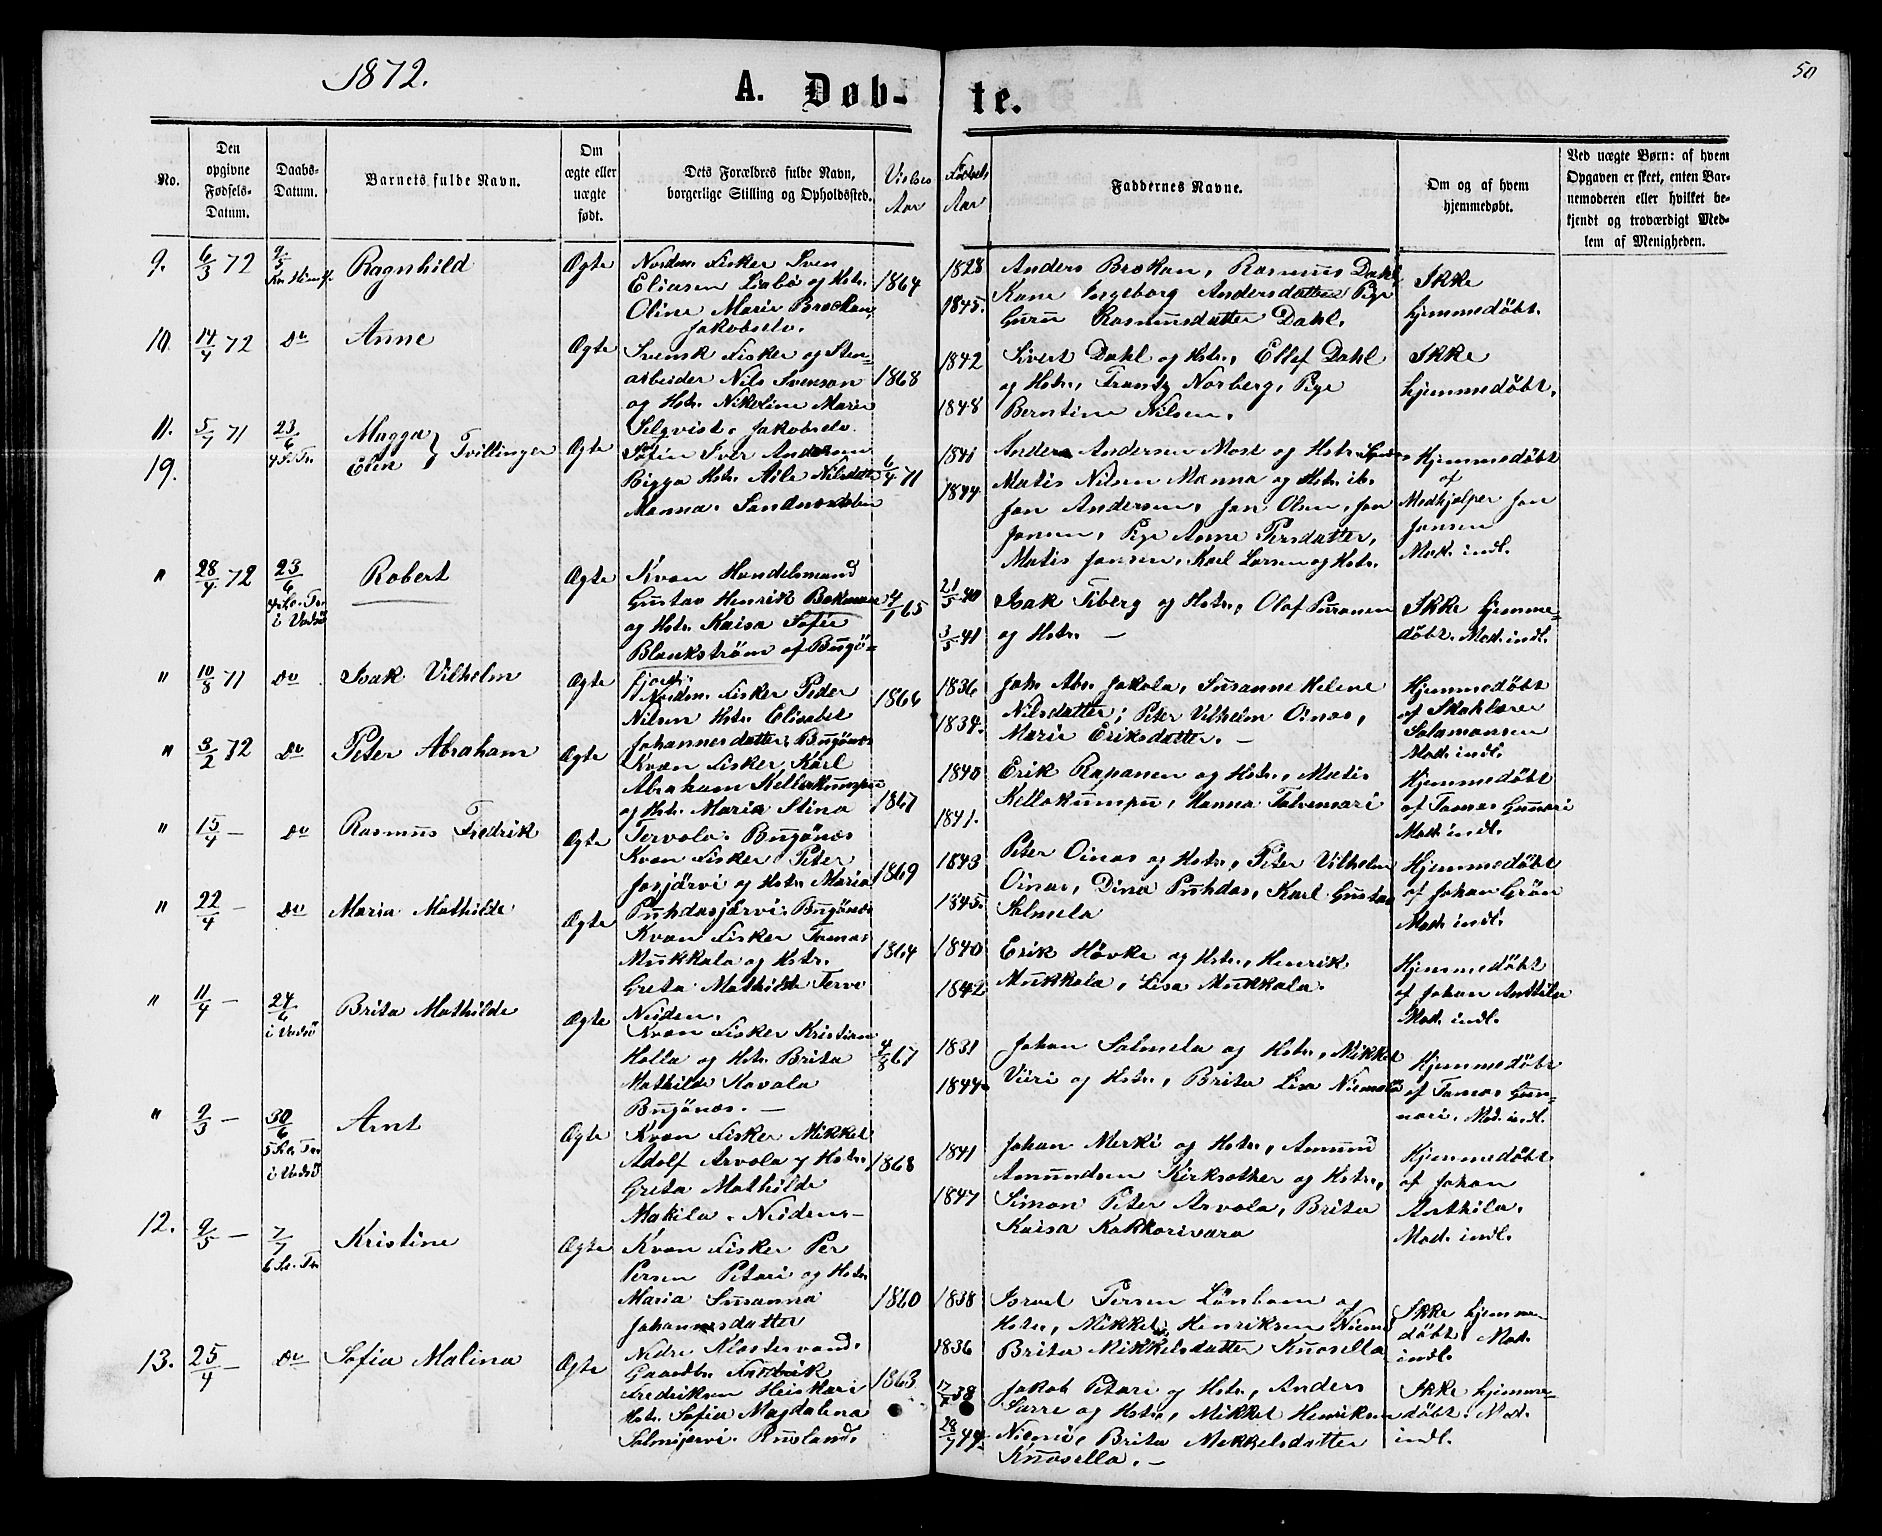 1872.
50
A. Døb-
te.
No.
Den
opgivne
Fødsels-
Datum.
Daabs-
Datum.
Barnets fulde Navn.
Om
ægte eller
uægte
født.
Dets Forældres fulde Navn,
borgerlige Stilling og Opholdssted.
Vielses
Aar
Fødsels
Aar
Faddernes Navne.
Om og af hvem
hjemmedøbt.
Ved uægte Børn: af hvem
Opgaven er skeet, enten Bar-
nemoderen eller hvilket be-
kjendt og troværdigt Med-
lem af Menigheden.
9.
6/3 72
9/5
Ragnhild
Ægte
Nordm. Fisker Sven
Eliasen Liabø og Hstr.
Oline Marie Brækan
Jakobselv.
1864
1828
1845.
Anders Brækan, Rasmus Dahl,
Kone Ingeborg Andersdatter Pige
Guru Rasmusdatter Dahl.
Ikke
hjemmedøbt.
10.
14/4 72
Do
Anne
Ægte
Svensk Fisker og Sten-
arbeider Nils Svenson
og Hstr. Nikoline Marie
Selqvist. Jakobselv.
1868
1842
1848
Sivert Dahl og Hstr., Ellef Dahl
og Hstr., Frantz Norberg, Pige
Berntine Nilsen.
Ikke
hjemmedøbt.
11.
19.
5/7 71
23/6
4 S. Tr.
Magga
Elen } Tvillinger
Ægte
Søfin Iver Andersen
Bigga Hstr. Aile Nilsdatter
Manna. Sandneselven
6/4 71
1841
1844
Anders Andersen Most og Hstr.
Matis Nilsen Manna og Hstr. ib.
Jon Andersen, Jon Olsen, Jon
Jonsen, Pige Anne Persdatter,
Matis Jonsen, Karl Larsen og Hstr.
Hjemmedøbt
af
Medhjælper Jon
Jonsen
Mod. indl.
"
28/4 72
23/6
4. So. Tr.
i Vadsø
Robert
Ægte
Kvæn Handelsmand
Gustav Henrik Bokman
og Hstr. Kaisa Sofie
Blankstrøm af Bugø-
fjord.
4/1 65
21/5 40
3/5 41
Isak Fiberg og Hstr., Olaf Pusanen
og Hstr. —
Ikke hjemme-
døbt. Mod. indl.
"
10/8 71
Do
Isak Vilhelm
Ægte
Nordm. Fisker Peder
Nilsen Hstr. Elisabet
Johannesdatter. Bugønæs
1866
1836
1834.
Joh. Abr. Jakola, Susanne Helene
Nilsdatter; Peter Vilhelm Oinas,
Marie Eriksdatter. —
Hjemmedøbt
af Skolelærer
Salamonsen
Mod. indl.
"
3/2 72
Do
Peter Abraham
Ægte
Kvæn Fisker Karl
Abraham Kellokumpu
og Hstr. Maria Stina
Tervola. Bugønæs
1867
1840
1841.
Erik Rapanen og Hstr., Matis
Kellokumpu, Hanna Talvensari
Hjemmedøbt
af Tomas Gunnari
Mod. indl.
"
15/4 —
Do
Rasmus Fredrik
Ægte
Kvæn Fisker Peter
Josjärvi og Hstr. Maria
Puhdasjärvi. Bugønæs
1869
1843
1845.
Peter Oinas og Hstr., Peter Vilhelm
Oinas, Dina Puhdas, Karl Gustav
Salmela
Hjemmedøbt
af Johan Grøn
Mod. indl.
"
22/4 —
Do
Maria Mathilde
Ægte
Kvæn Fisker Tomas
Mukkala og Hstr.
Greta Mathilde Tervo
Neiden.
1864
1840
1842
Erik Høvke og Hstr., Henrik
Mukkala, Lisa Mukkala.
Hjemmedøbt
af Johan Anthila
Mod. indl.
"
11/4 —
24/6
i Vadsø
Brita Mathilde
Ægte
Kvæn Fisker Kristian
Holla og Hstr. Brita
Mathilde Kavala
Bugønæs. —
4/8 67
1831
1844.
Johan Salmela og Hstr., Mikkel
Viiri og Hstr., Brita Lisa Niemelä
Hjemmedøbt
af Tomas Gun-
nari. Mod. indl.
"
9/3 —
30/6
5 So. Tr.
i Vadsø
Arnt
Ægte
Kvæn Fisker Mikkel
Adolf Arvola og Hstr.
Greta Mathilde
Makila. Neiden.
1868
1841
1847
Johan Merki og Hstr., Amund
Amundsen Kirksæther og Hstr.,
Simon Peter Arvola, Brita
Kaisa Kakkorivara
Hjemmedøbt
af Johan
Anthila.
Mod. indl.
12.
9/5 —
7/7
6 S. Tr.
Kristine
Ægte
Kvæn Fisker Per
Persen Petari og Hstr.
Maria Susanna
Johannesdatter
Nedre Klostervand.
1860
1838
1836
Isrvel Persen Lønbom og
Hstr., Mikkel Henriksen Niemi
Brita Mikkelsdatter Knosella
Ikke hjemme-
døbt. Mod.
indl.
13.
25/4 —
Do
Sofia Malina
Ægte
Gaardbr. Fredrik
Fredriksen Heiskari
Hstr. Sofia Magdalena
Salmijærvi. Rusland.
1863
38
28/7 44.
Jakob Petari og Hstr., Anders
Sarre og Hstr., Mikkel Henriksen
Niemi, Brita Mikkelsdatter
Knosella. —
Ikke hjemme-
døbt. Mod.
indl.